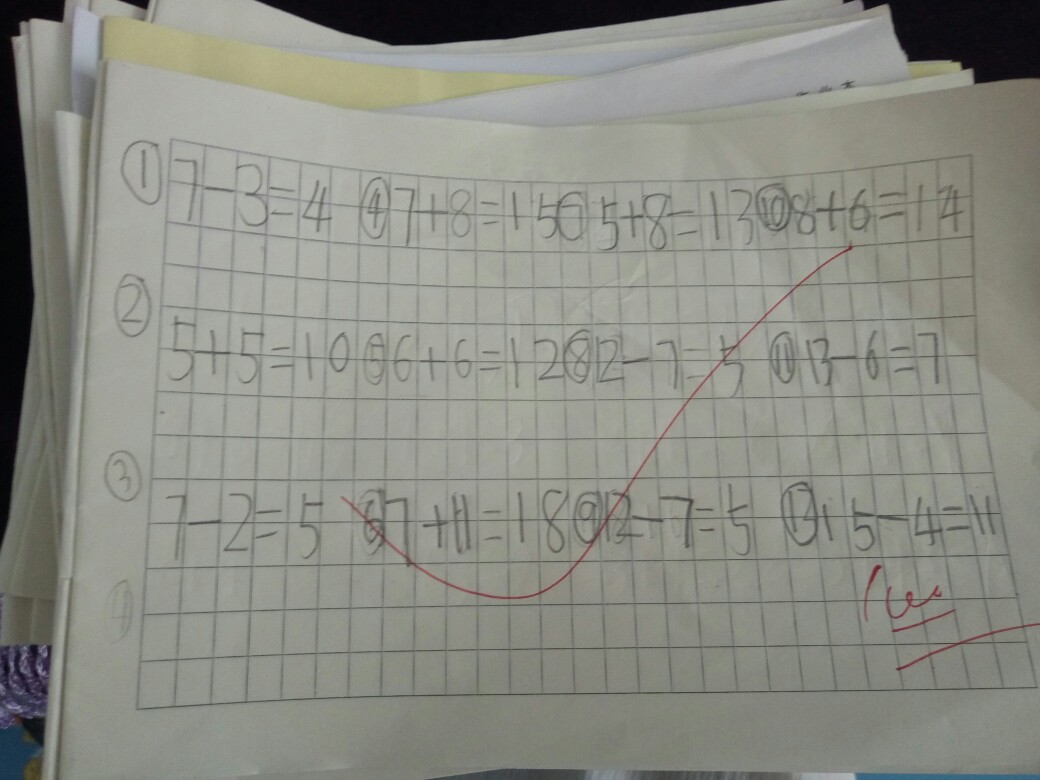 ① 7-3=4 ④ 7+8=15 ⑦ 5+8=13 ⑩ 8+6=14
② 5+5=10 ⑤ 6+6=12 ⑧ 12-7=5 ⑪ 13-6=7
③ 7-2=5 ⑥ 7+11=18 ⑨ 12-7=5 ⑫ 15-4=11
100